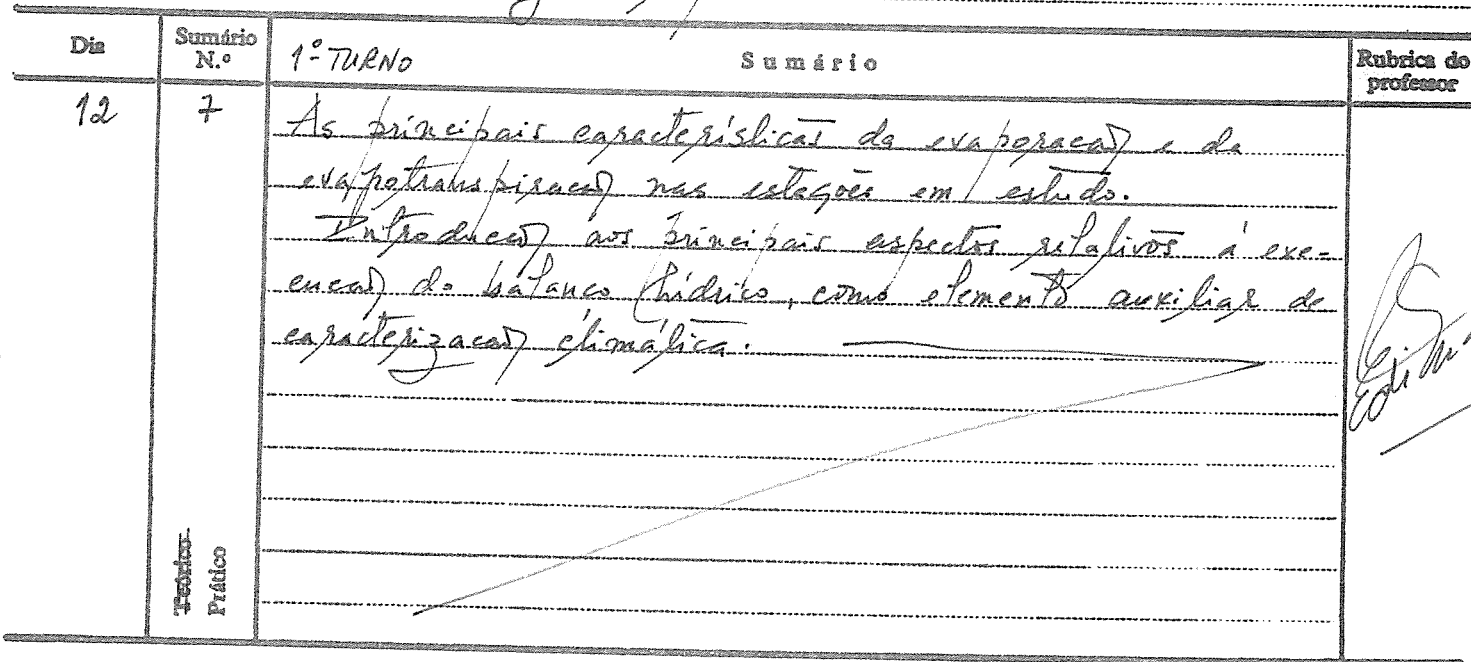 Dia
Sumário N.º
1º TURNO
Sumário
Rubrica do professor
12
7
As principais características da evaporação e da
evapotranspiração nas estações em estudo.
Introdução aos principais aspectos relativos á exe-
cução do balanço hídrico, como elemento auxiliar de
caracterização climática.
Teórico
Prático